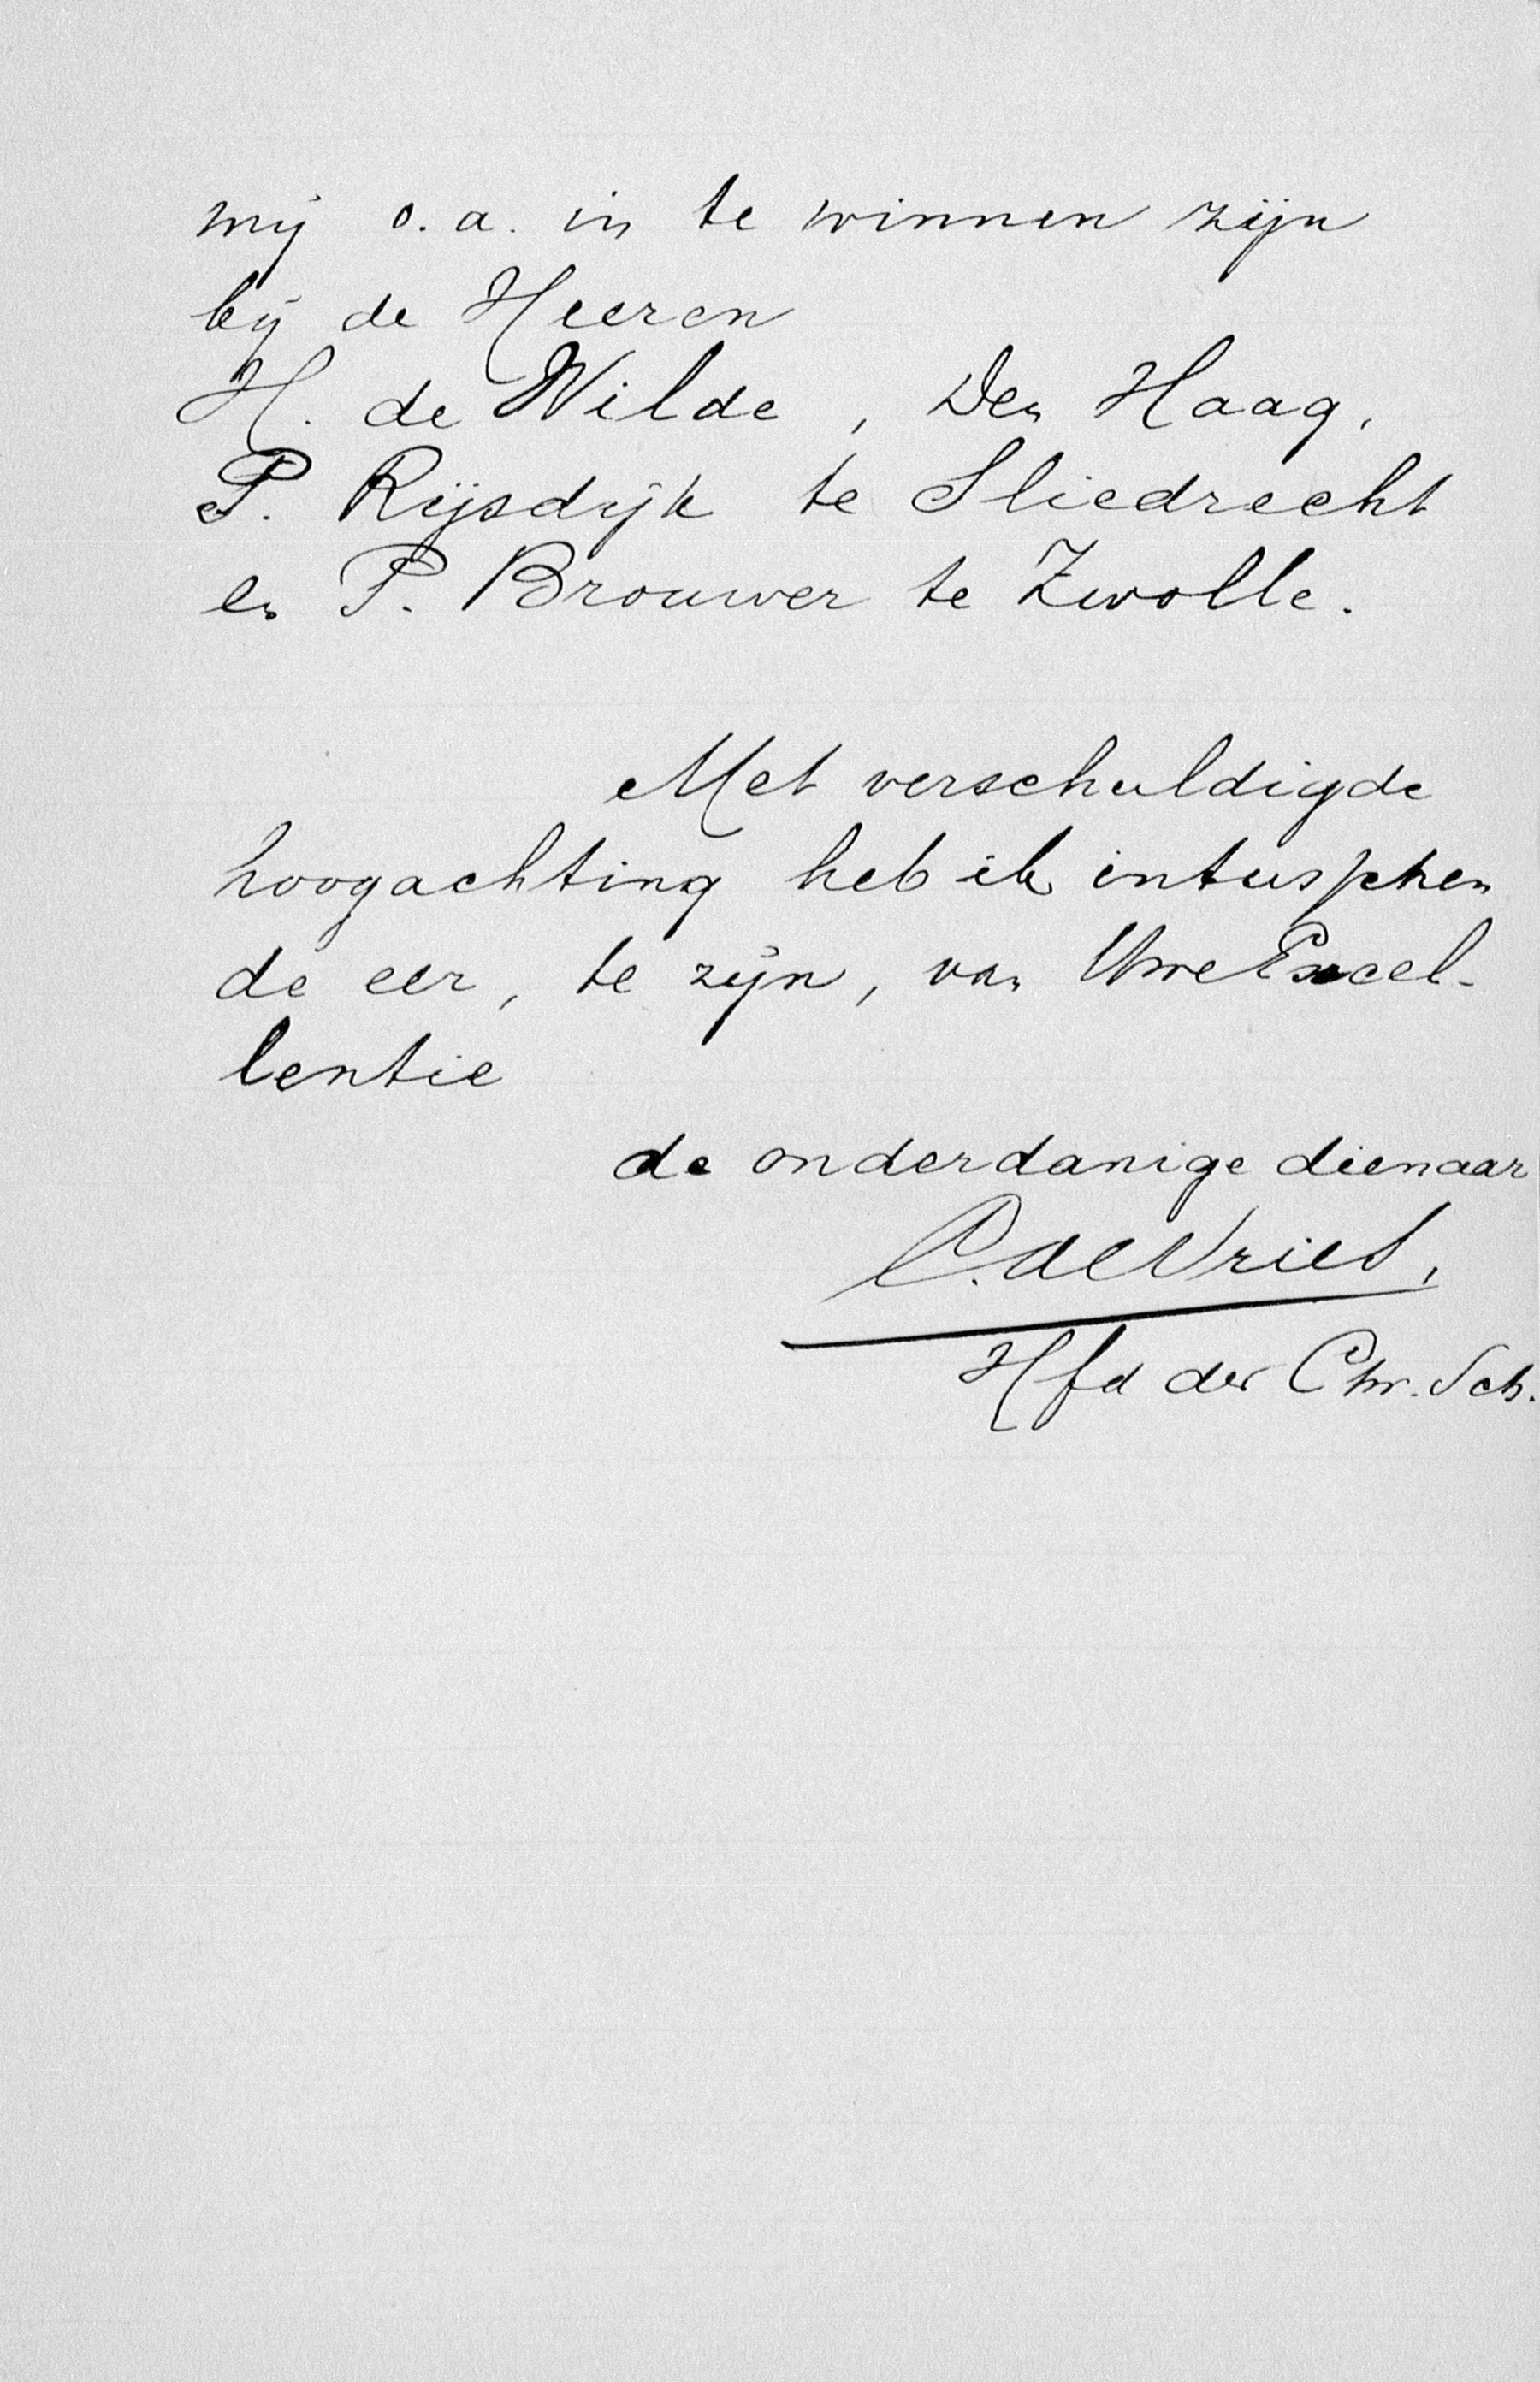 mij o. a. in te winnen zijn
bij de Heeren
H. de Wilde, Den Haag,
P. Rijsdijk te Sliedrecht
en P. Brouwer te Zwolle.
Met verschuldigde
hoogachting heb ik intusschen
de eer, te zijn, van Uwe Excel-
lentie
de onderdanige dienaar
C. de Vries,
Hfd der Chr. Sch.